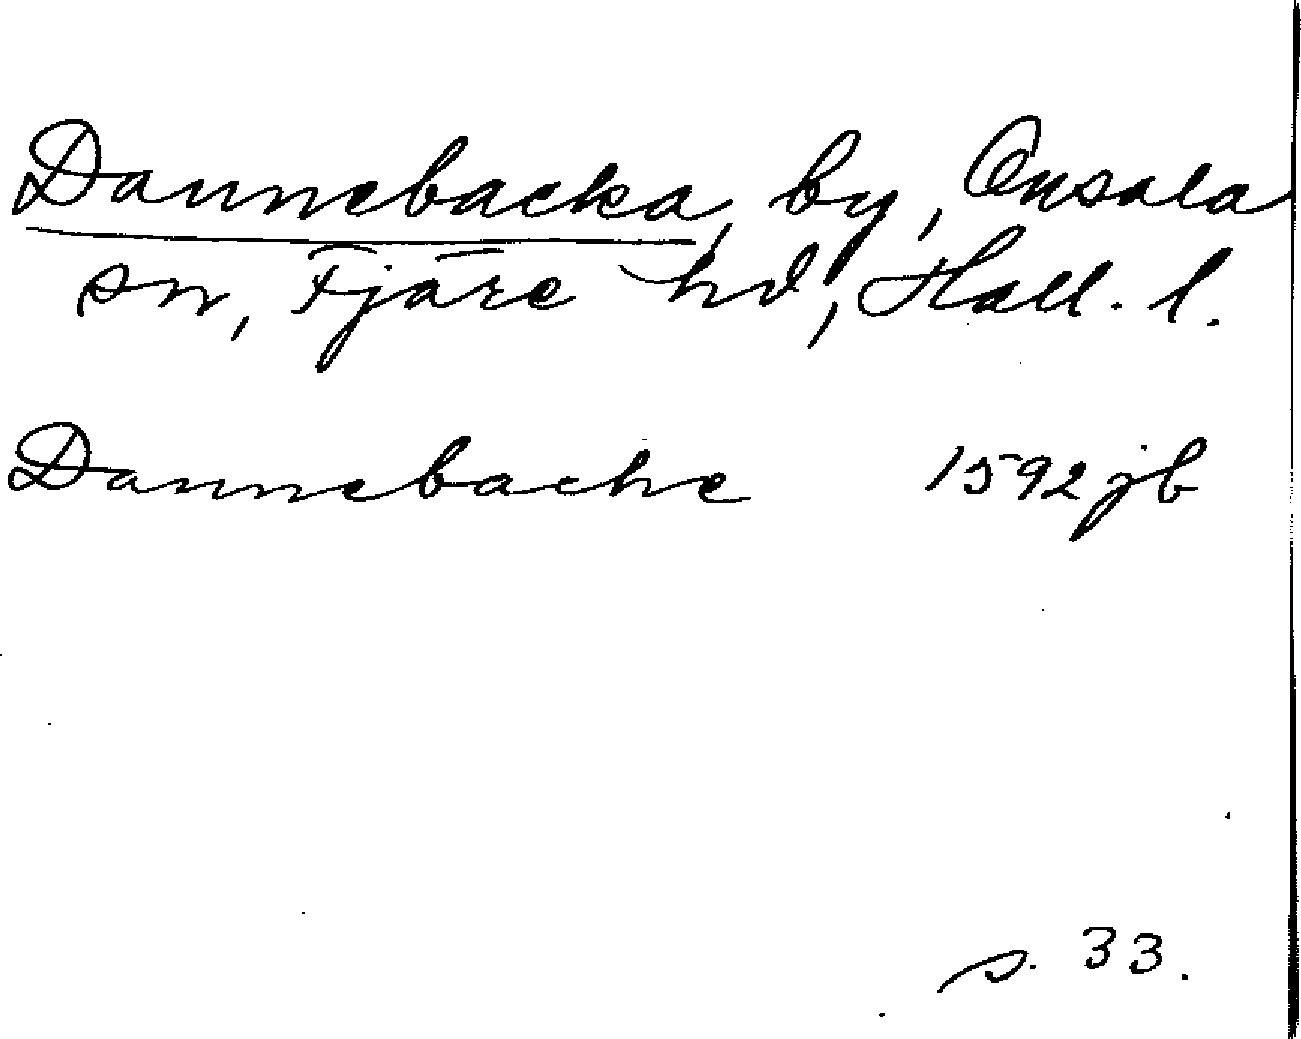 Dannebacka, by, Onsala
sn, Fjäre hd, Hall. l.
Dannebacke 1592 jb
s. 33.